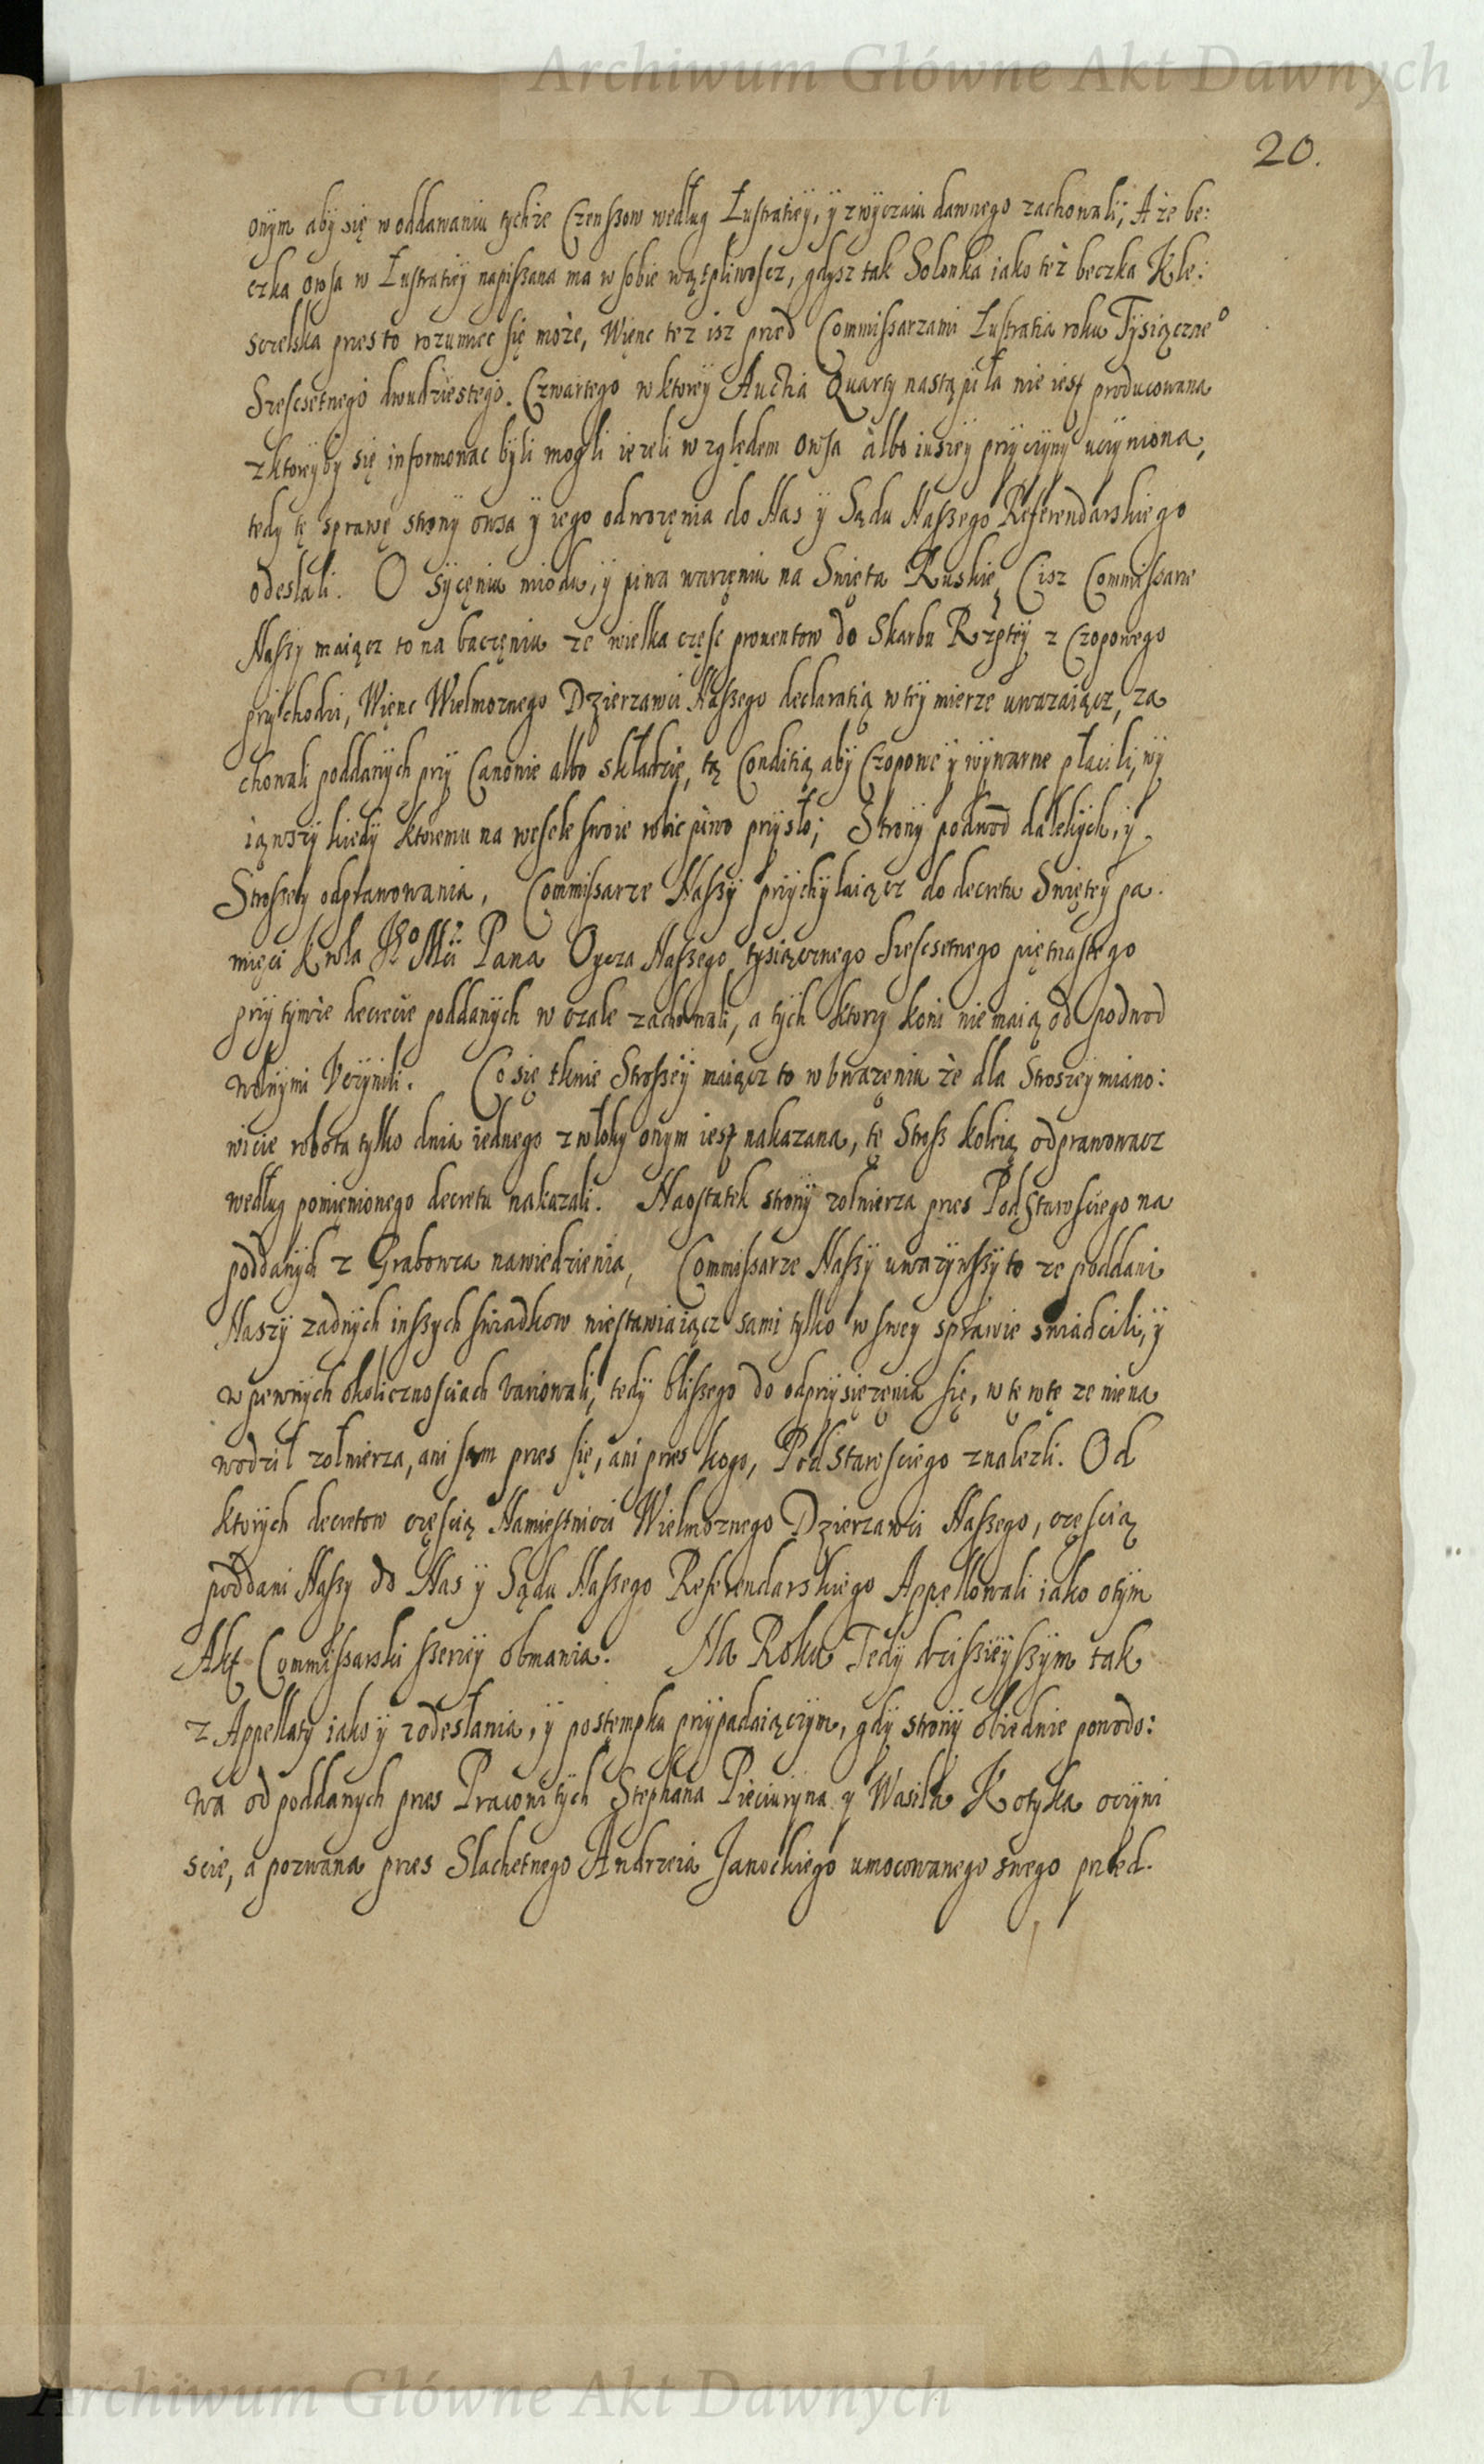 Archiwum Główne Akt Dawnych
20.
onÿm abÿ się w oddawaniu tychże Czenszow według Lustratieÿ, ÿ zwÿczaiu dawnego zachowali; A że be:
czka owsa w Lustratieÿ napiszana ma w sobie wątpliwoscz, gdysz tak Solonka iako też beczka Kle:
sczelska przes to rozumiec się może, Więnc tez isz przed Commissarzami Lustratia roku Tysiączneo
Szescsetnego dwudziestego Czwartego w ktoreÿ Auctia Quarty nastąpiła nie iest producowana
z ktoreÿ by się informowac bÿli mogli iezeli względem owsa albo inszeÿ przÿczÿny uczÿniona,
tedy tę sprawę strony owsa ÿ iego odwozęnia do Nas ÿ Sądu Naszego Referendarskiego
odesłali. O sÿcęniu miodu, ÿ piwa warzęniu na Swięta Ruskie, Cisz Commissarze
Naszy maiącz to na baczęniu ze wielka częsc prouentow do Skarbu Rzptey z Czopowego
przÿchodzi, Więnc Wielmoznego Dzierzawci Naszego declaratią w teÿ mierze uwazaiącz, za
chowali poddanÿch przÿ Canonie albo składzie, tą Conditią abÿ Czopowe ÿ wÿwarne płacili, wÿ
iąwszÿ kiedÿ ktoremu na wesele swoie robic piwo przÿsło; Stronÿ podwod dalekich, ÿ
Strozeÿ odprawowania, Commissarze Naszÿ przÿchÿlaiącz do decretu Swięteÿ pa.
mięci Krola Jeo Mci Pana Oÿcza Naszego tysiącznego szescsetnego piętnastego
przÿ tÿmże decrecie poddanÿch w czale zachowali, a tÿch ktorzÿ koni nie maią od podwod
wolnÿmi Vczÿnili. Co się tknie Strozeÿ maiącz to w bwazęniu że dla Strozeÿ miano:
wicie robota tylko dnia iednego z włoky onym iest nakazana, tę Stroż koleią odprawowacz
według pomienionego decretu nakazali. Naostatek stronÿ zolnierza przes PodStarosciego na
poddanÿch z Grabowca nawiedzienia, Commissarze Naszÿ uwazÿwszÿ to ze poddani
Naszÿ zadnÿch inszÿch swiadkow niestawiaiącz sami tylko w sweÿ sprawie swiadcili, ÿ
w pewnÿch okolicznosciach variowali, tedÿ blisszego do odprzÿsięzęnia się, w tę rotę ze niena
wodził zołnierza, ani sam przes się, ani przes kogo, PodStarosciego znalezli. Od
ktorÿch decretow częscią Namiestniczi Wielmoznego Dzierzawci Naszego, częscią
poddani Naszy do Nas ÿ Sądu Naszego Referendarskiego Appellowali iako otÿm
Akt Commissarski szerzeÿ obmawia. Na Roku Tedÿ dzisieÿszÿm tak
z Appellaty iako ÿ z odesłania, ÿ postęmpku przÿpadaiączÿm, gdÿ stronÿ obiednie powodo:
wa od poddanych przes Pracowitÿch Stephana Pieciurÿna y Wasila Kotyka oczÿwi
scie, a pozwana przes Slachetnego Andrzeia Janockiego umocowanego swego przed.
Archiwum Główne Akt Dawnych